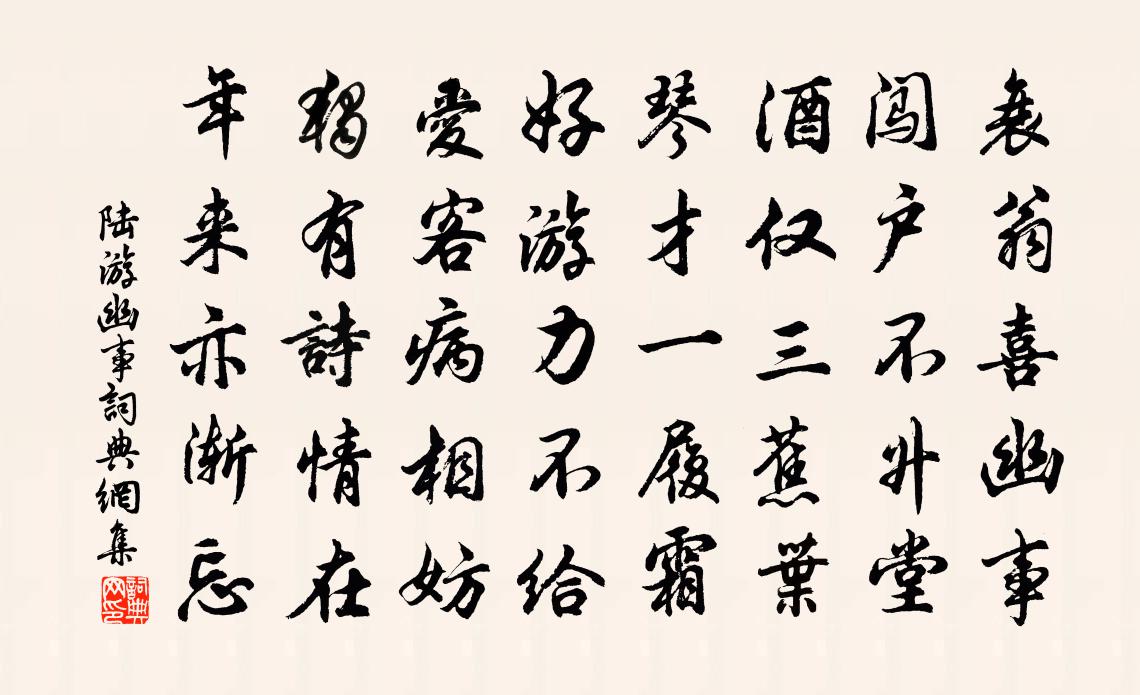 衰翁喜幽事
闯户不升堂
酒仅三蕉葉
琴才一履霜
好游力不给
愛客病相妨
獨有詩情在
年来亦渐忘
陆游幽事詞典網集
詞典网印